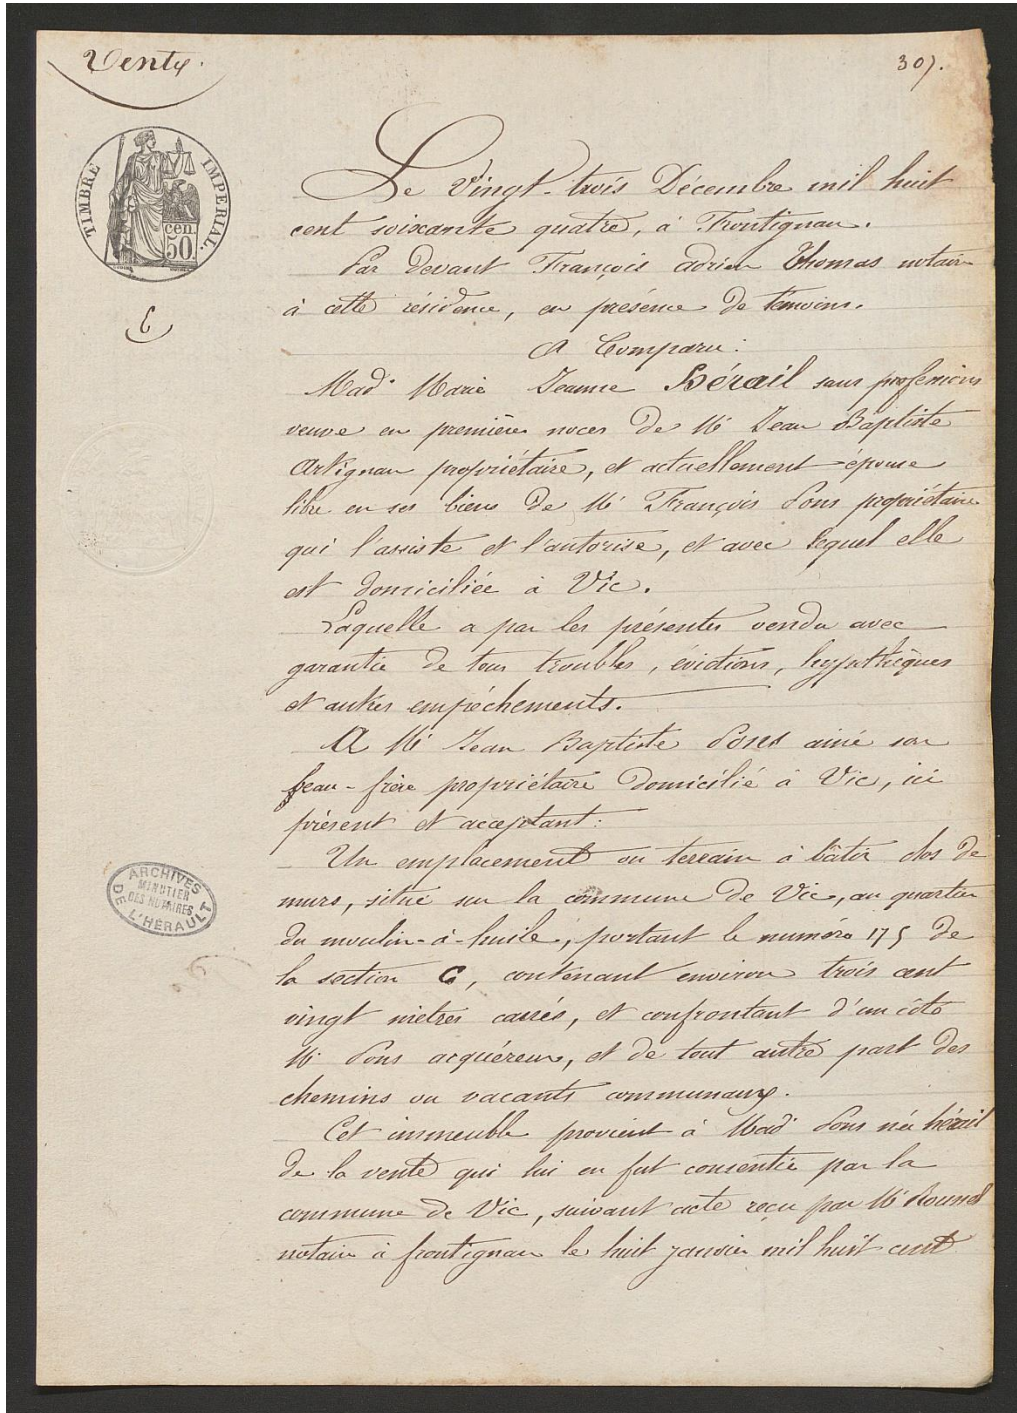 Vente.
307.
TIMBRE IMPERIAL.
50 cen.
Le Vingt-trois Décembre mil huit
cent soixante quatre, à Frontignan.
Par devant François adrien Thomas notaire
à cette résidence, en présence de témoins.
A Comparu :
Mad.e Marie Jeanne Hérail sans profession
veuve en premières noces de Mr Jean Baptiste
Artignan propriétaire, et actuellement épouse
libre en ses biens de Mr François Pons propriétaire
qui l'assiste et l'autorise, et avec lequel elle
est domiciliée à Vic.
Laquelle a par les présentes vendu avec
garantie de tous troubles, évictions, hypothèques
et autres empêchements.
A Mr Jean Baptiste Pons ainé son
beau-frère propriétaire domicilié à Vic, ici
présent et acceptant :
Un emplacement ou terrain à bâtir clos de
murs, situé sur la commune de Vic, au quartier
du moulin-à-huile, portant le numéro 175 de
la section C, contenant environ trois cent
vingt mètres carrés, et confrontant d'un côté
Mr Pons acquéreur, et de tout autre part des
chemins ou vacants communaux.
Cet immeuble provient à Mad.e Pons née hérail
de la vente qui lui en fut consentie par la
commune de Vic, suivant acte reçu par Me
notaire à frontignan le huit janvier mil huit cent
ARCHIVES
MINUTIER
DES NOTAIRES
DE L'HÉRAULT